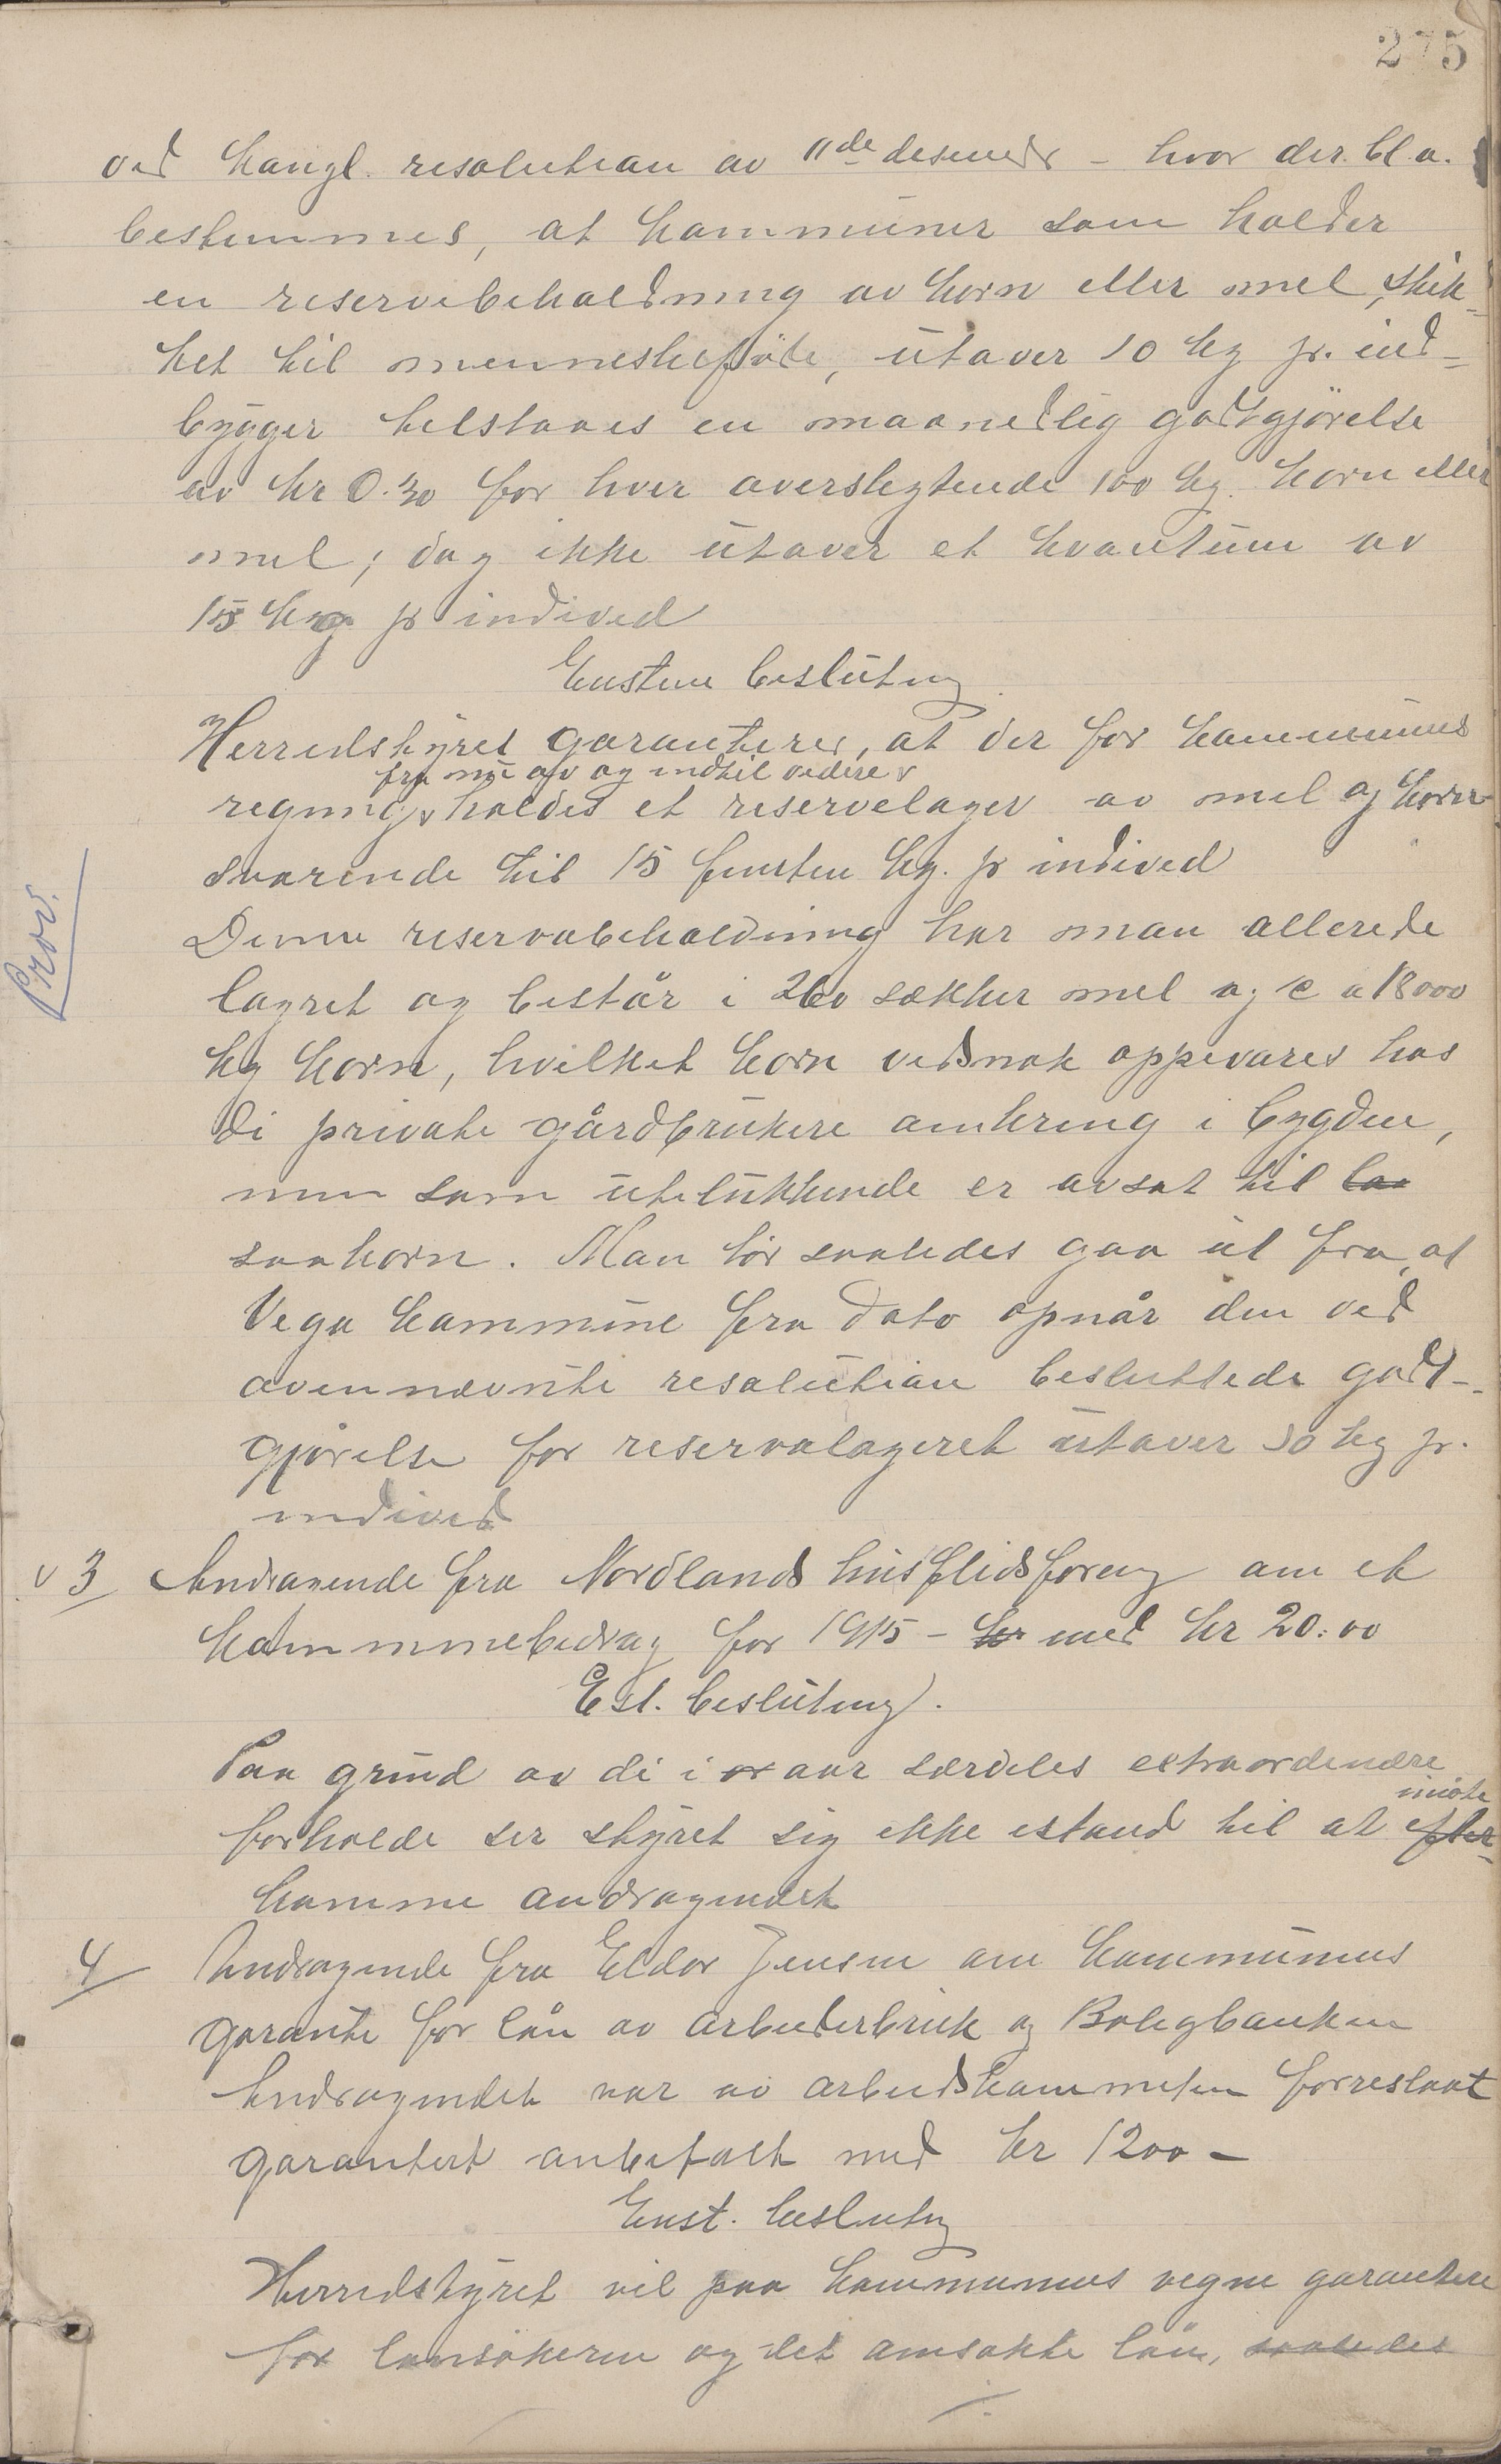 275
ved kongl. resolution av 11de desember - hvor der bl.a.
bestemmes, at kommuner som holder
en reservebeholdning av korn eller mel, skik-
ket til menneskeføde, utover 10 kg pr. ind-
bygger tilstaaes en maanedlig godtgjörelse
av kr 0.30 for hver overskytende 100 kg. korn eller
mel; dog ikke utover et kvantum av
15 kg pr individ
Enstem beslutng
Herredstyret garanterer, at der for kommunens
fra nu av og indtil videre
regning holdes et reservelager av mel og korn
svarende til 15 femten kg. pr individ
Denne reservebeholdning har man allerede
lagret og består i 260 sækker mel og c a 18000
kg korn, hvilket korn vedsnok oppevares hos
di private gårdbrukere omkring i bygden,
men som utelukkende er avsat til
saakorn. Man tör saaledes gaa ut fra, at
Vega kommune fra dato opnår den ved
ovennævnte resolution besluttede godt-
gjörelse for reservelageret utover 10 kg pr.
individ
v 3 Andragende fra Nordlands husflidsforeng om et
kommunebidrag for 1915 - kr med kr 20.00
Est. beslutning.
Paa grund av de i aar særdeles extraordenære
imöte
forholde ser styret sig ikke istand til at efter-
komme andragendet
4 Andragende fra Eldor Jensen om kommunens
garanti for lån av arbeiderbruk og Boligbanken
Andragendet var av arbeidskommiteen forreslaat
garantert anbefalt med kr 1200 -
Enst. beslutng
Herredstyret vil paa kommunens vegne garantere
for lansökeren og det omsökte lån, saaledes
Prov.